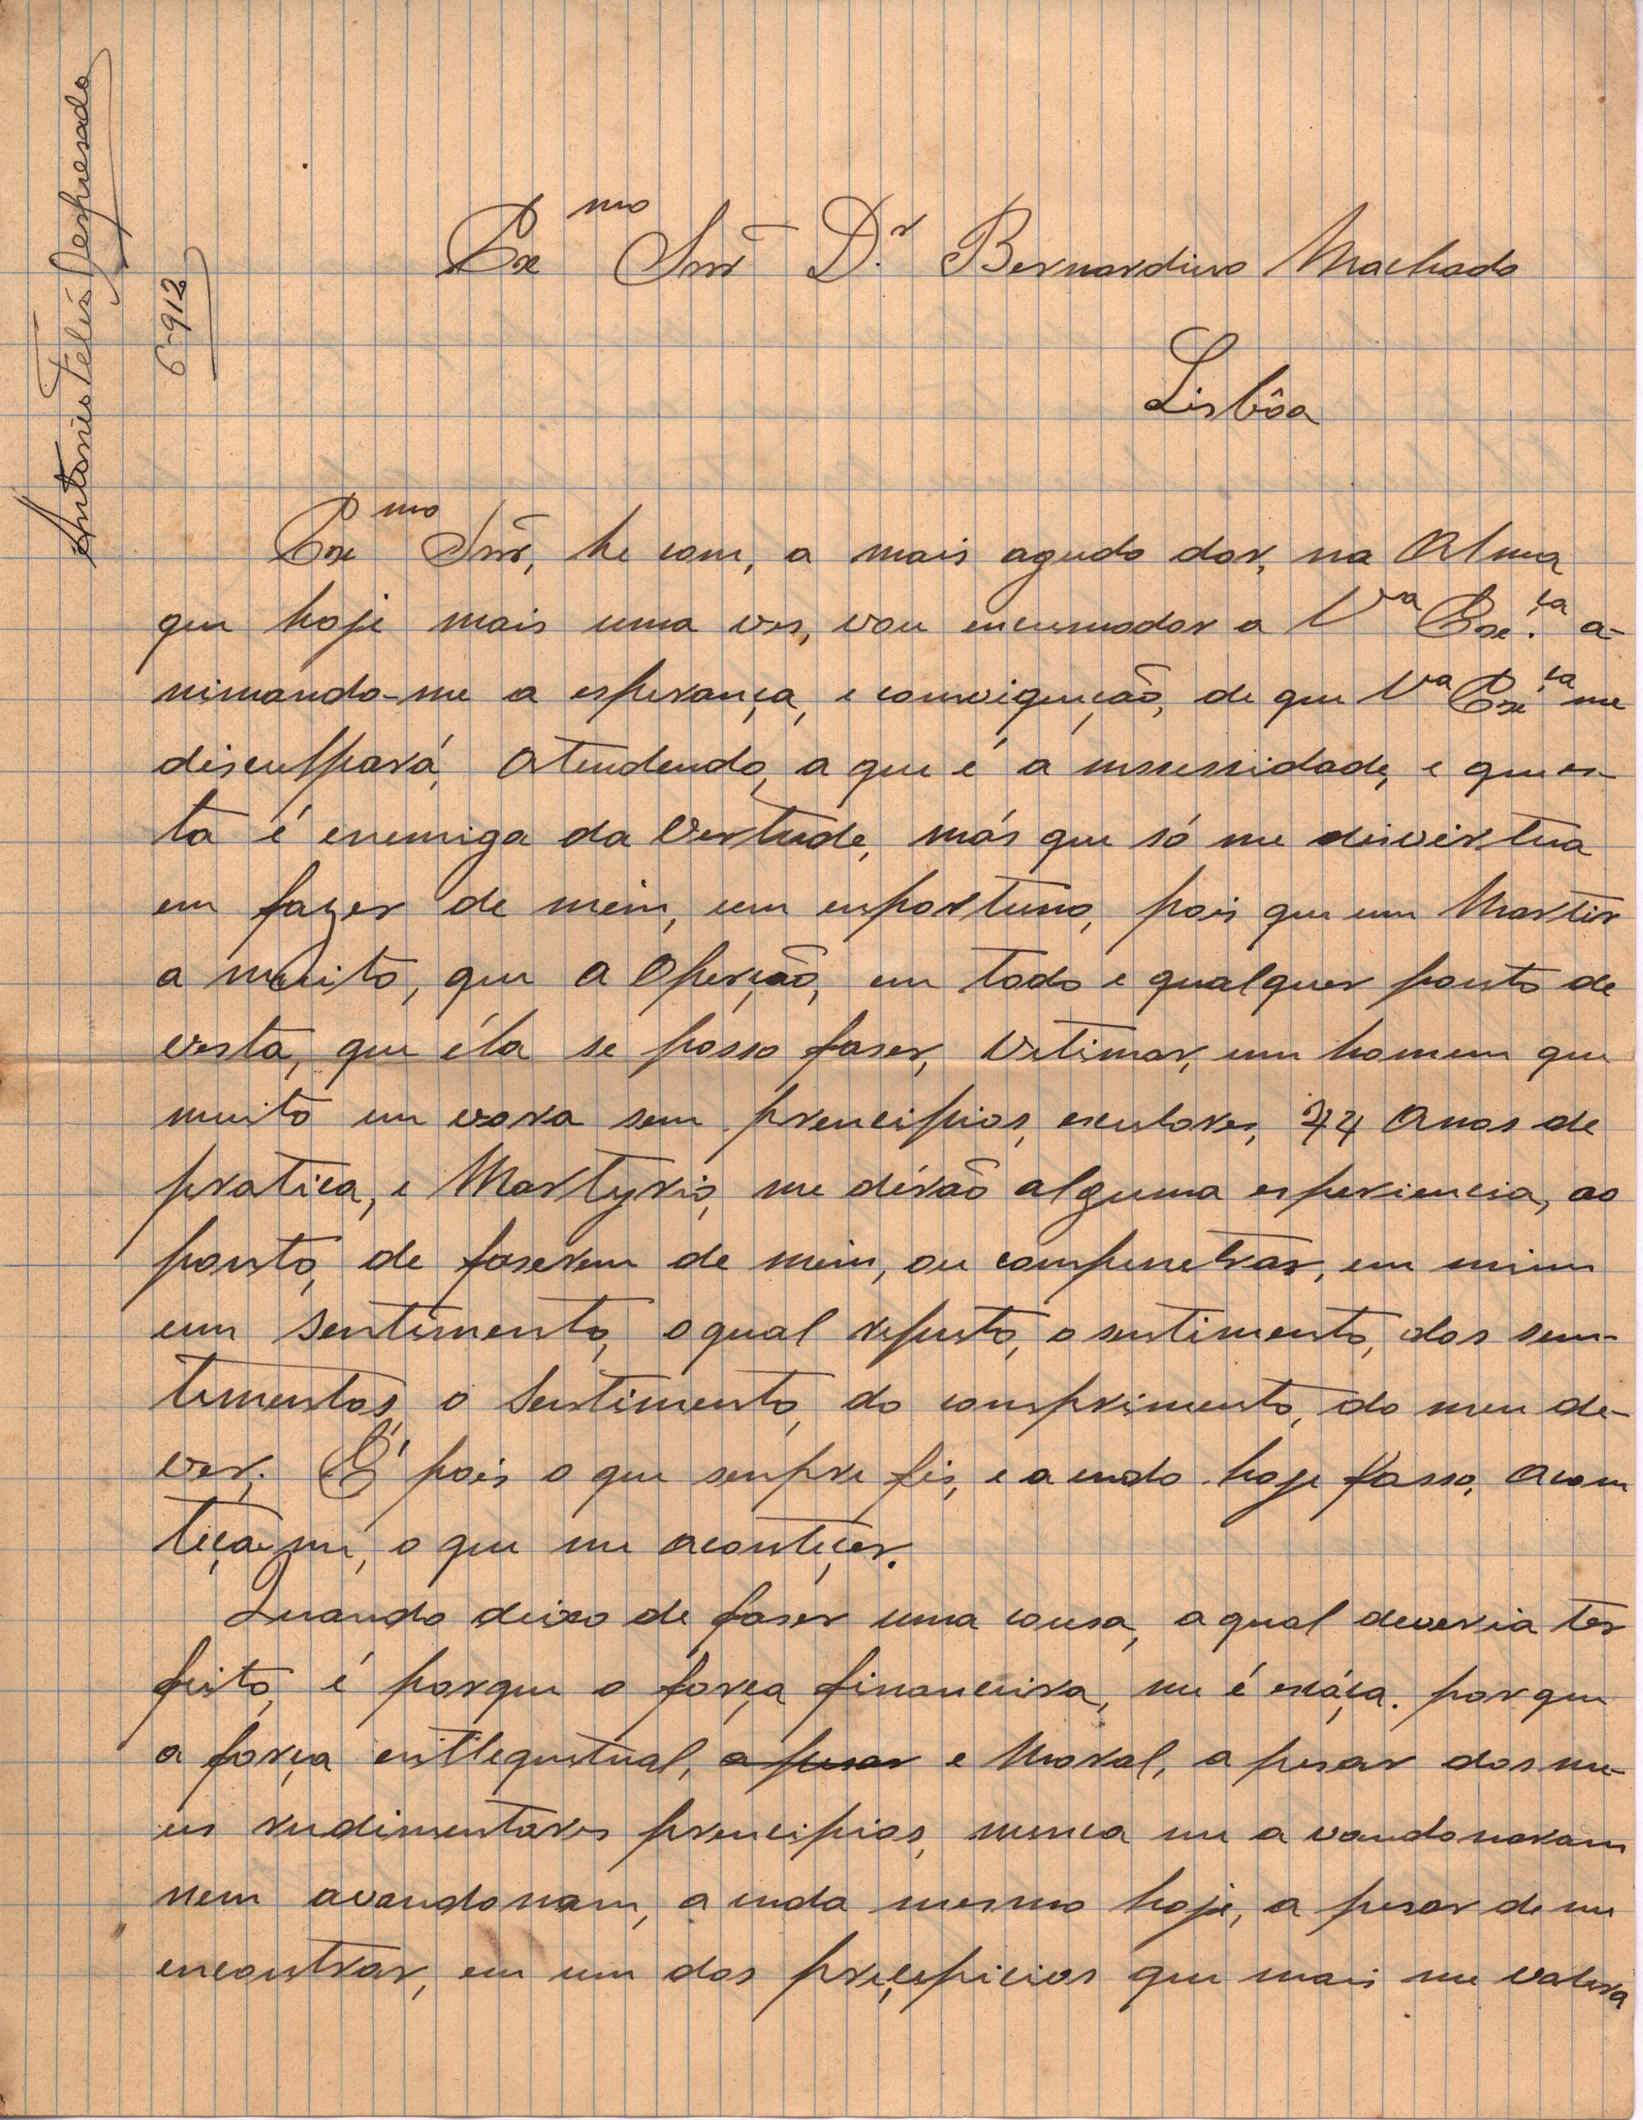 Antonio Felis Despresado
6-912
Exmo Snr Dr. Bernardino Machado
Lisbôa
Exmo Snr, he com, a mais agudo dor, na Alma
que hoje mais uma ves, vou encumodar a Va Exe.ca a-
nimando-me a esperança, e comvigução, de que Va Execa me
disculpará, Atendendo, a que é a nesessidade, e que es-
ta é enemiga da Vertude, más que só me disvirtua
em fazer de mim, um enportuno, pois que um Martir
a muito, que a Operção, em todo e qualquer ponto de
vesta, que éla se posso faser, Vitimar, um homem que
muito em vora sem prencipios, esculares, 44 Anos de
pratica, e Martyrio, me dérão alguma esperiencia, ao
ponto, de faserem de mim, ou compenetrar, em mim
um Sentimento, o qual reputo, o sentimento, dos sem-
timentos, o Sentimento, do comprimento, do meu de-
ver. É pois o que senpre fis, e a enda hoje fasso, Acom
teça-me, o que me acontecer.
Quando deixo de faser uma cousa, a qual deveria ter
feito, é porque o força financeira, me é escáça. porque
a força entlequetual, a pesar e Moral, a pesar dos me-
us rudimentares prencipios, nunca me a vandonaram
nem avandonam, a enda mesmo hoje, a pesar de me
encontrar, em um dos precepicios que mais me